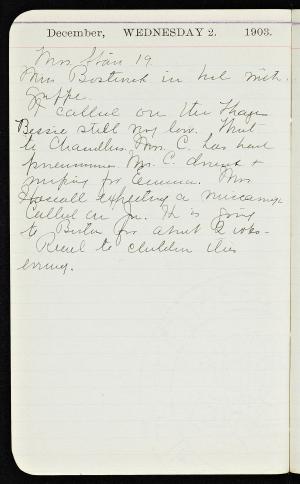 December, WEDNESDAY 2. 1903.
Mrs Starr 19
Mrs Bostwick in bed with
grippe.
I called on the Thayers
Bessie still very low. Went
to Chandlers. Mrs. C. has had
pneumonia Mr. C. drunk &
for Emma. Mrs
expecting a miscarriage
Called on Jn. He is going
to Boston for about 2 wks.
Read to children this
evening.